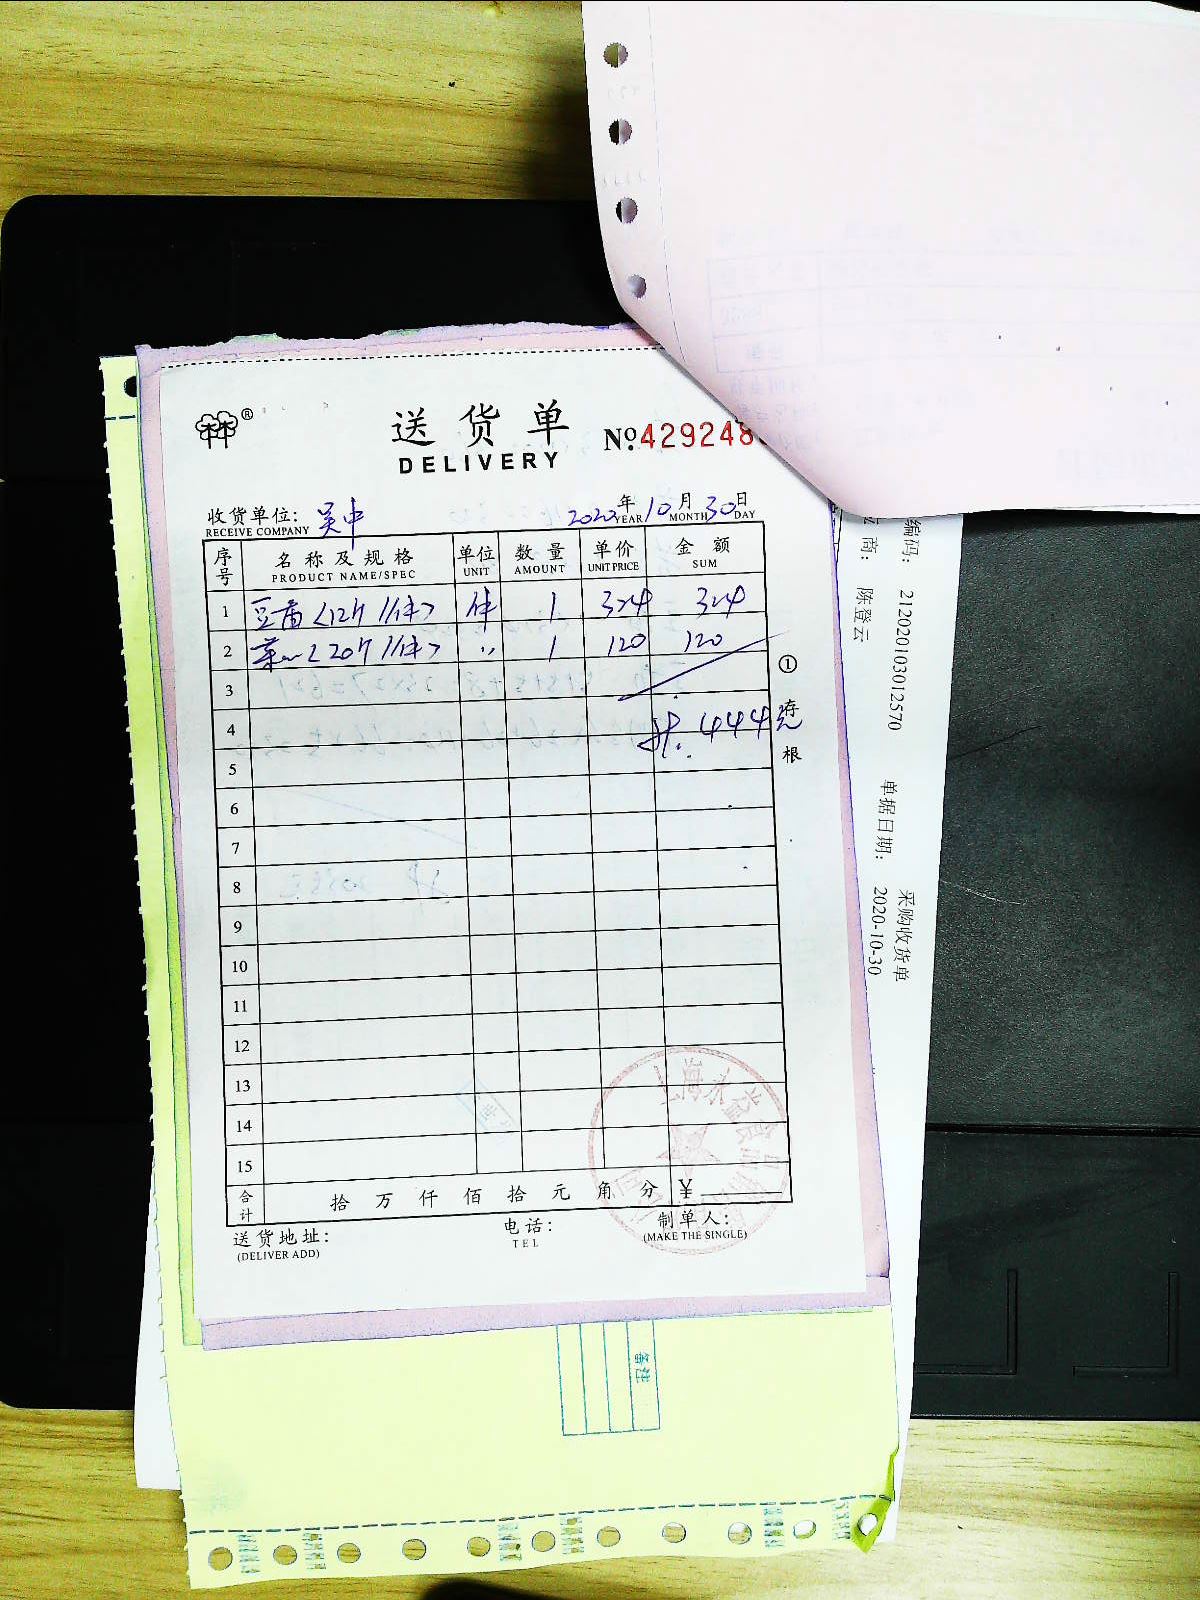 送货单
DELIVERY
№ 429248
收货单位: 吴中
RECEIVE COMPANY
2020年10月30日
YEAR MONTH DAY
序号 名称及规格 单位 数量 单价 金额
PRODUCT NAME/SPEC UNIT AMOUNT UNIT PRICE SUM
1 豆苗<12斤/件> 件 1 324 324
2 菜心<20斤/件> 〃 1 120 120
3
4 共: 444元
5
6
7
8
9
10
11
12
13
14
15
合计 拾 万 仟 佰 拾 元 角 分 ¥
送货地址:
(DELIVER ADD)
电话:
TEL
制单人:
(MAKE THE SINGLE)
① 存根
上海永益食品
编码: 212020103012570
采购收货单
商: 陈登云
单据日期: 2020-10-30
备注